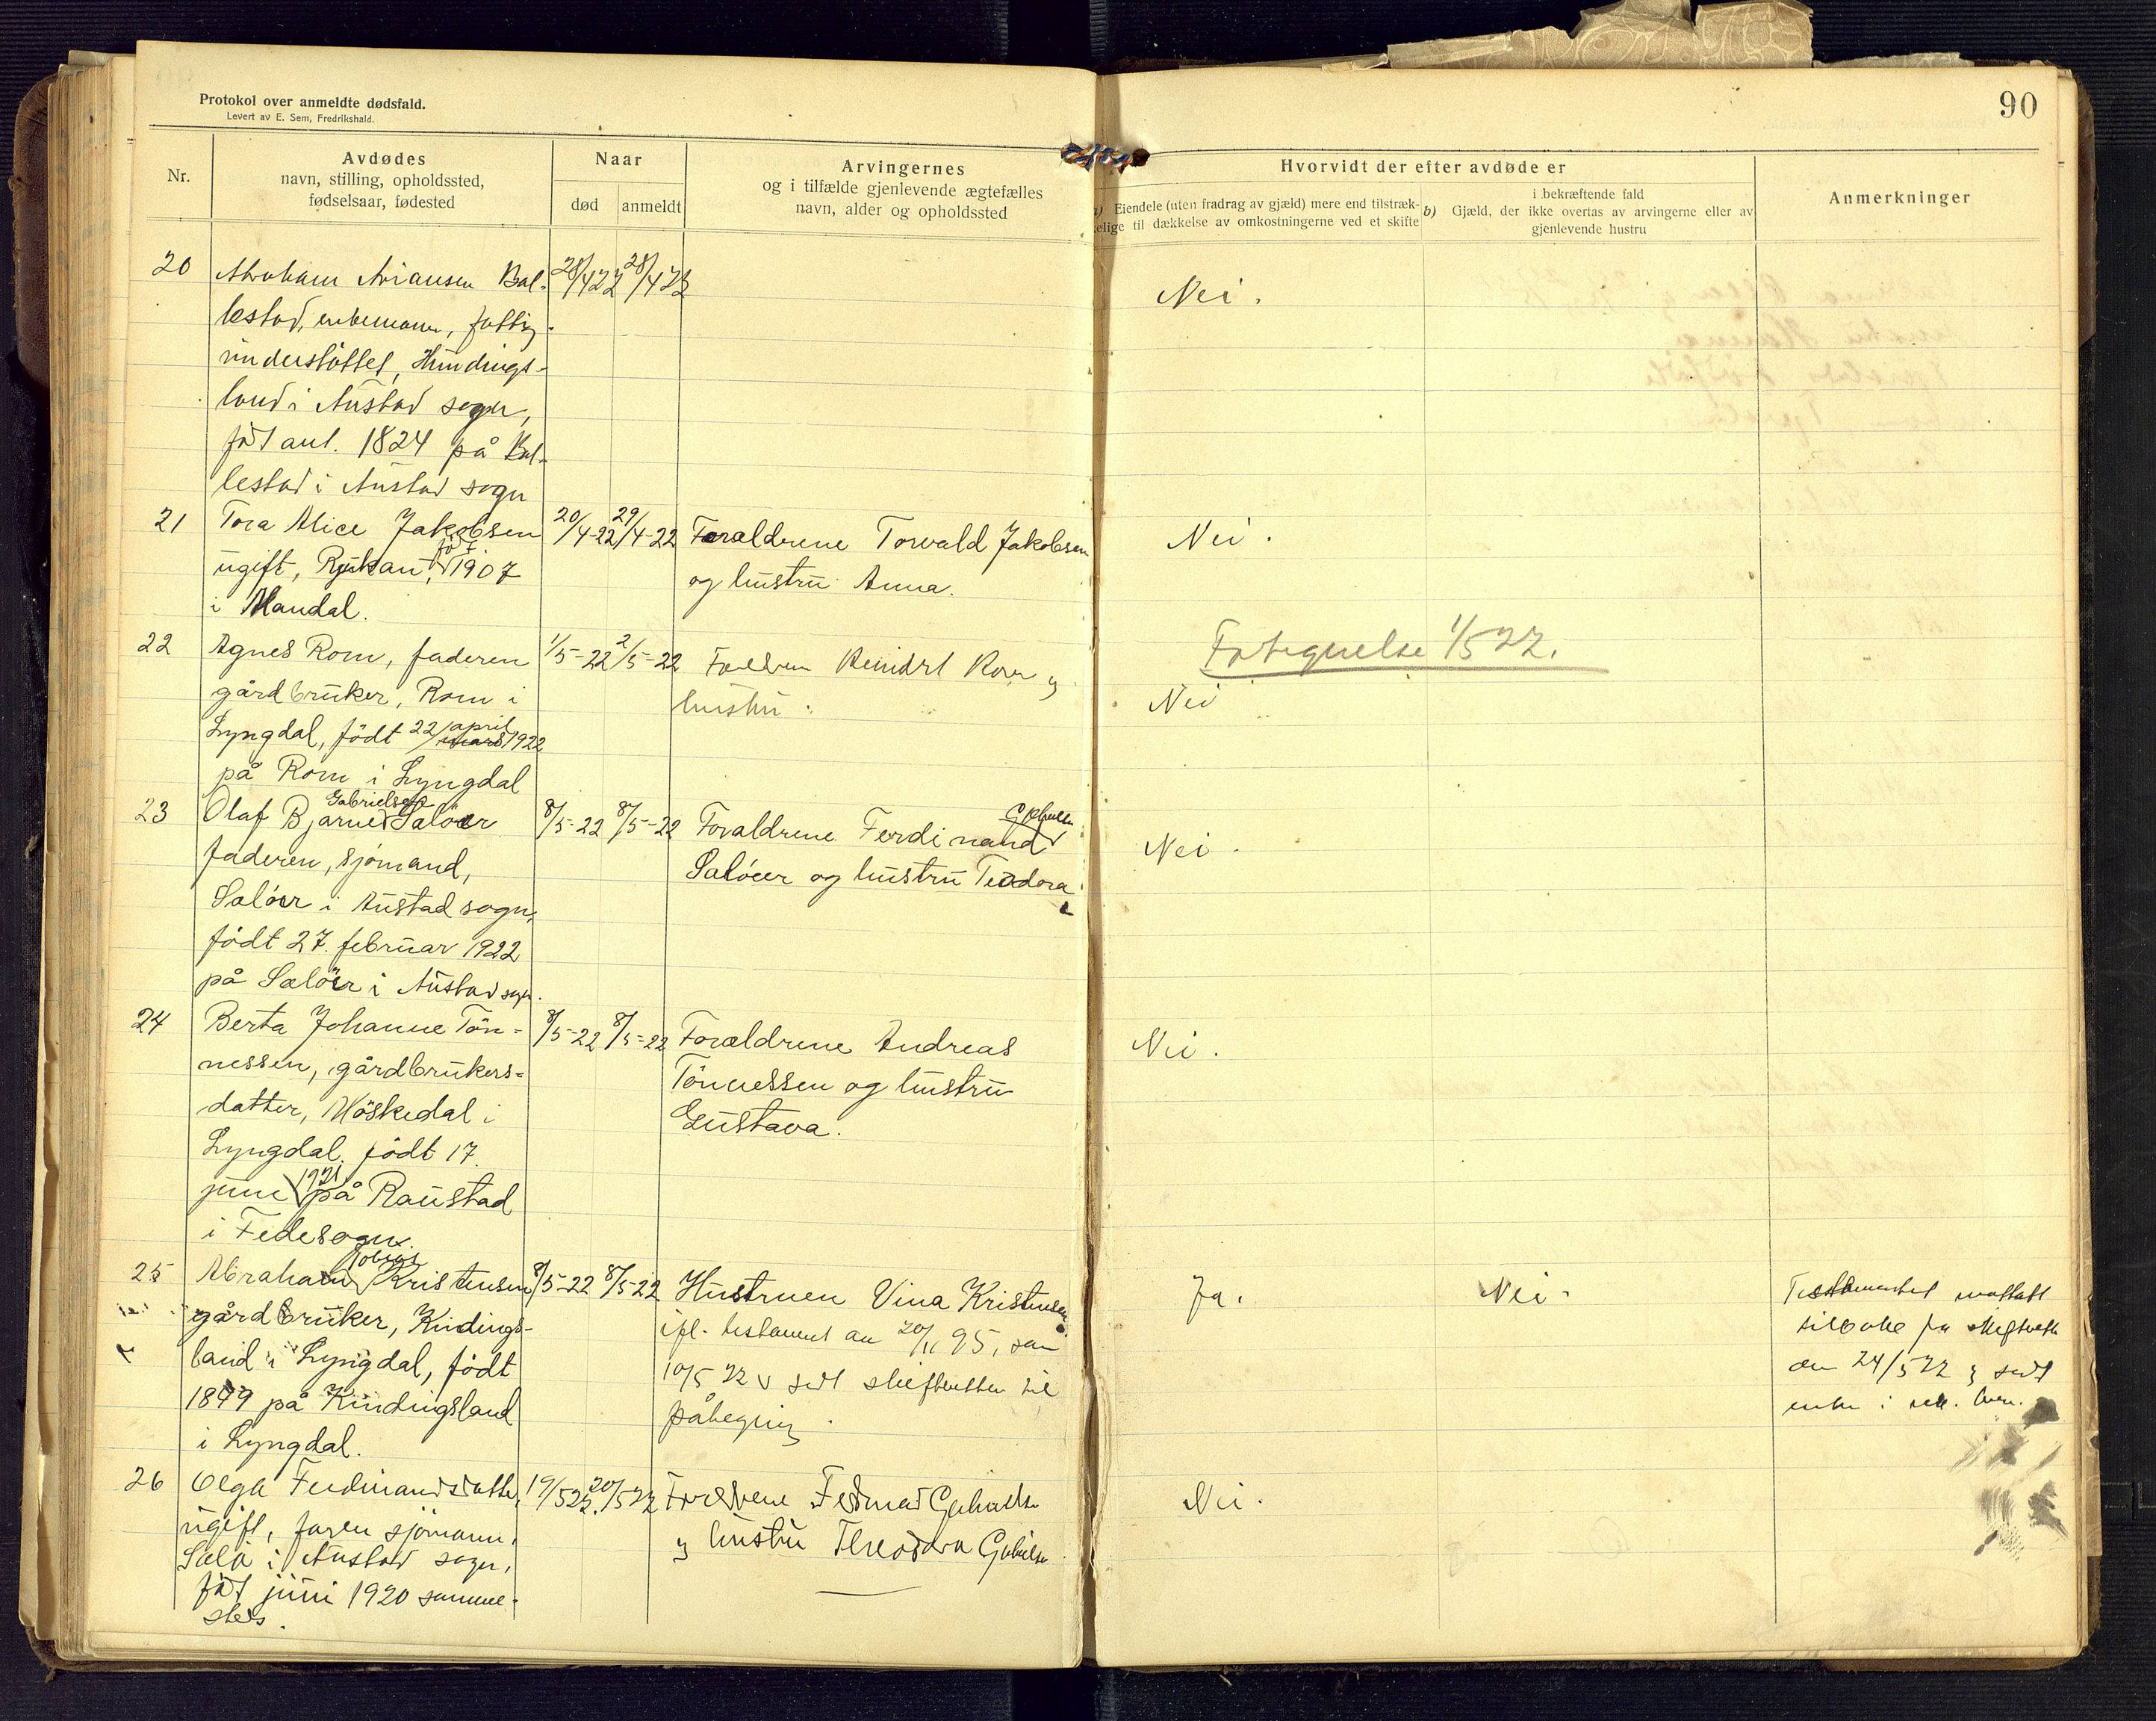 Protokol over anmeldte dødsfald.
Levert av E. Sem, Fredrikshald.
90
Nr.
Avdødes
navn, stilling, opholdssted,
fødselsaar, fødested
Naar
død
anmeldt
Arvingernes
og i tilfælde gjenlevende ægtefælles
navn, alder og opholdssted
Hvorvidt der efter avdøde er
a) Eiendele (uten fradrag av gjæld) mere end tilstræk-
kelige til dækkelse av omkostningerne ved et skifte
i bekræftende fald
b) Gjæld, der ikke overtas av arvingerne eller av
gjenlevende hustru
Anmerkninger
20
Abraham Ariansen Bal-
lestad, enkemann, fattig-
understöttet, Hundings-
land i Austad sogn,
föd ant. 1824 på Bal-
lestad i Austad sogn
28/4 22
28/4 22
Nei.
21
Tora Alice Jakobsen
ugift, Rjukan, född 1907
i Mandal.
20/4-22
29/4-22
Foraldrene Torvald Jakobsen
og hustru Anna.
Nei.
22
Agnes Rom, faderen
gårdbruker, Rom i
Lyngdal, födt 22/april mars 1922
på Rom i Lyngdal
1/5-22
2/5-22
Rom og
hustru.
Fortegnelse 1/5 22.
Nei
23
Olaf Bjarne Gabrielsen Salöer
faderen, sjömand,
Salöer i Austad sogn,
födt 27. februar 1922
på Salöer i Austad sogn.
8/5-22
8/5-22
Foraldrene Ferdinand
Salöer og hustru Teodora
Nei.
24
Berta Johanne Tön-
nessen, gårdbrukers-
datter, Möskedal i
Lyngdal, födt 17.
juni 1921 på Raustad
i Fedesogn.
8/5-22
8/5-22
Foraldrene Andreas
Tönnessen og hustru
Gustava.
Nei.
25
Abraham Tobias Kristensen
gårdbruker, Kindings-
land i Lyngdal, födt
1849 på Kindingsland
i Lyngdal.
8/5-22
8/5-22
Hustruen Vina Kristensen
ifl. testament av 20/11 95, som
10/5 22 sendt skifteretten til
påtegning.
Ja.
Nei.
Testamentet mottatt
tilbake fra skifteretten
den 24/5 22 og sendt
26
Olga Ferdinandsdatter,
ugift, faren sjömann,
Salö i Austad sogn,
föd juni 1920 samme-
steds.
19/5 22.
20/5 22
Foreldrene Ferdinand Gabrielsen
og hustru Theodora Gabrielsen
Nei.